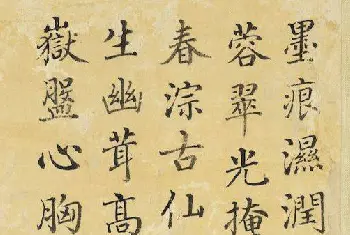 墨痕濕潤
蓉翠光掩
春淙古仙
生幽茸高
嶽盤心胸